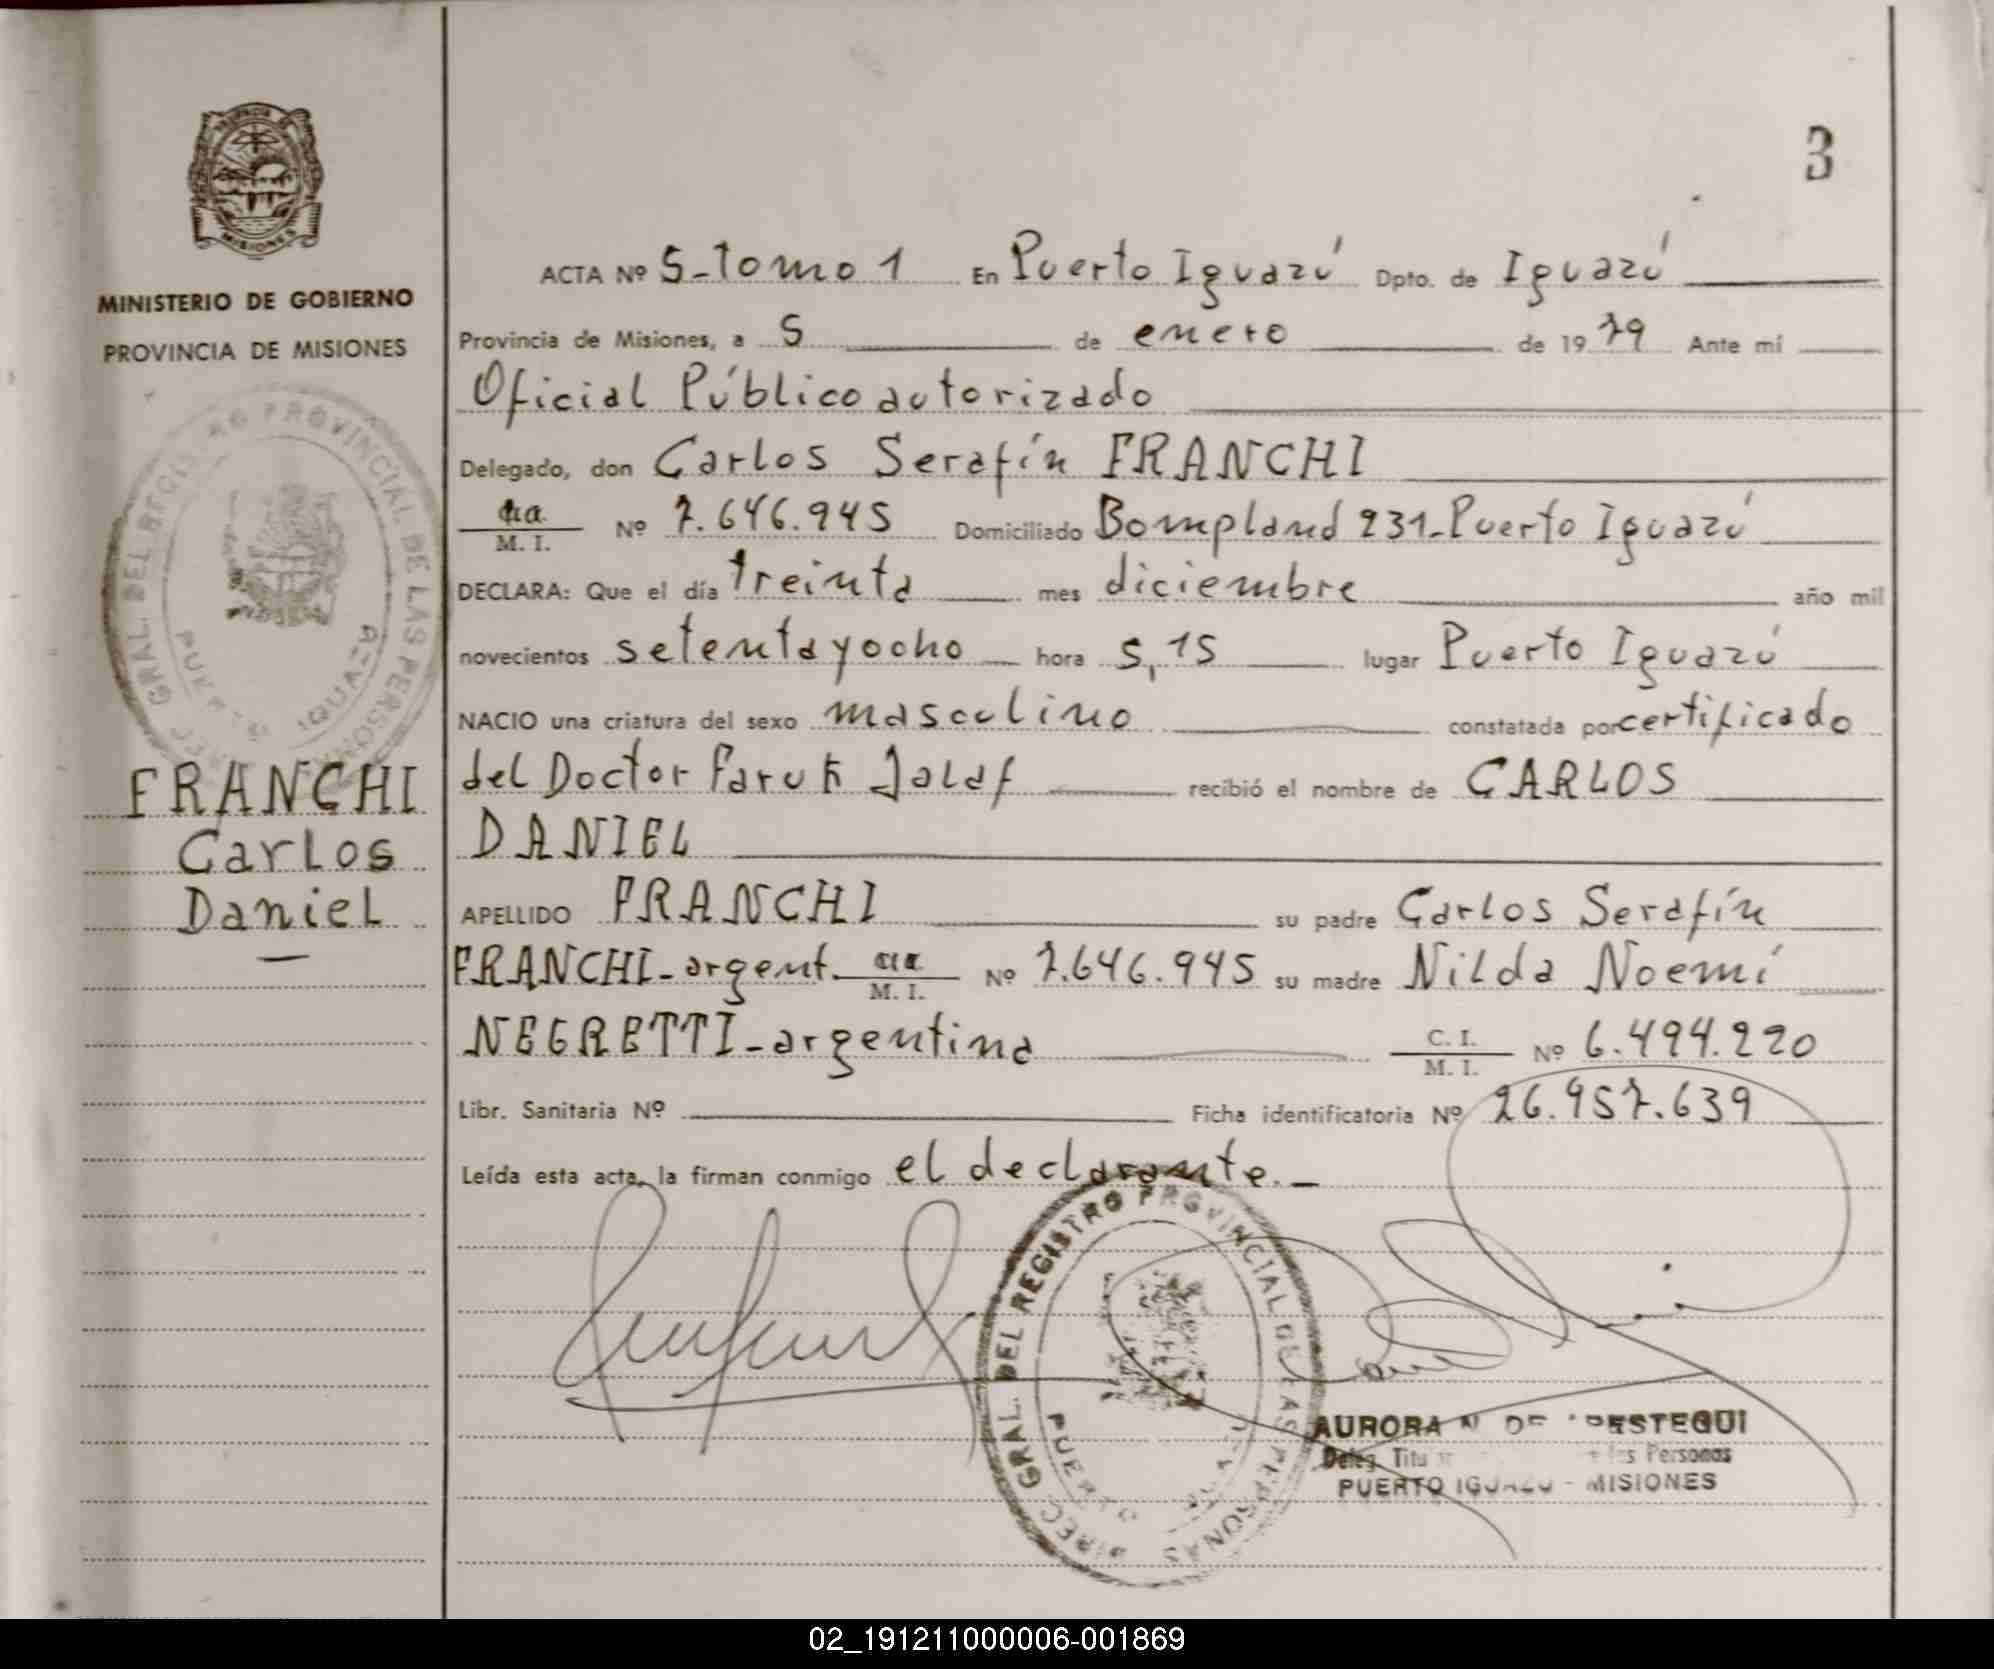 3
MISIONES
MINISTERIO DE GOBIERNO
PROVINCIA DE MISIONES
DIREC. GRAL. DEL REGISTRO PROVINCIAL DE LAS PERSONAS
PUERTO IGUAZU
FRANCHI
Carlos
Daniel
ACTA Nº 5-Tomo 1 En Puerto Iguazú Dpto. de Iguazú
Provincia de Misiones, a 5 de enero de 1979 Ante mí
Oficial Público autorizado
Delegado, don Carlos Serafín FRANCHI
M. I. Nº 7.646.945 Domiciliado Bompland 231-Puerto Iguazú
DECLARA: Que el día treinta mes diciembre año mil
novecientos setenta y ocho hora 5,15 lugar Puerto Iguazú
NACIO una criatura del sexo masculino constatada por certificado
del Doctor Faruk Jalaf recibió el nombre de CARLOS
DANIEL
APELLIDO FRANCHI su padre Carlos Serafín
FRANCHI-argent. M. I. Nº 7.646.945 su madre Nilda Noemí
NEGRETTI-argentina C. I. M. I. Nº 6.494.220
Libr. Sanitaria Nº Ficha identificatoria Nº 26.957.639
Leída esta acta, la firman conmigo el declarante.-
DIREC. GRAL. DEL REGISTRO PROVINCIAL DE LAS PERSONAS
PUERTO IGUAZU
AURORA N. DE
Deleg. Personas
PUERTO IGUAZU - MISIONES
02_191211000006-001869